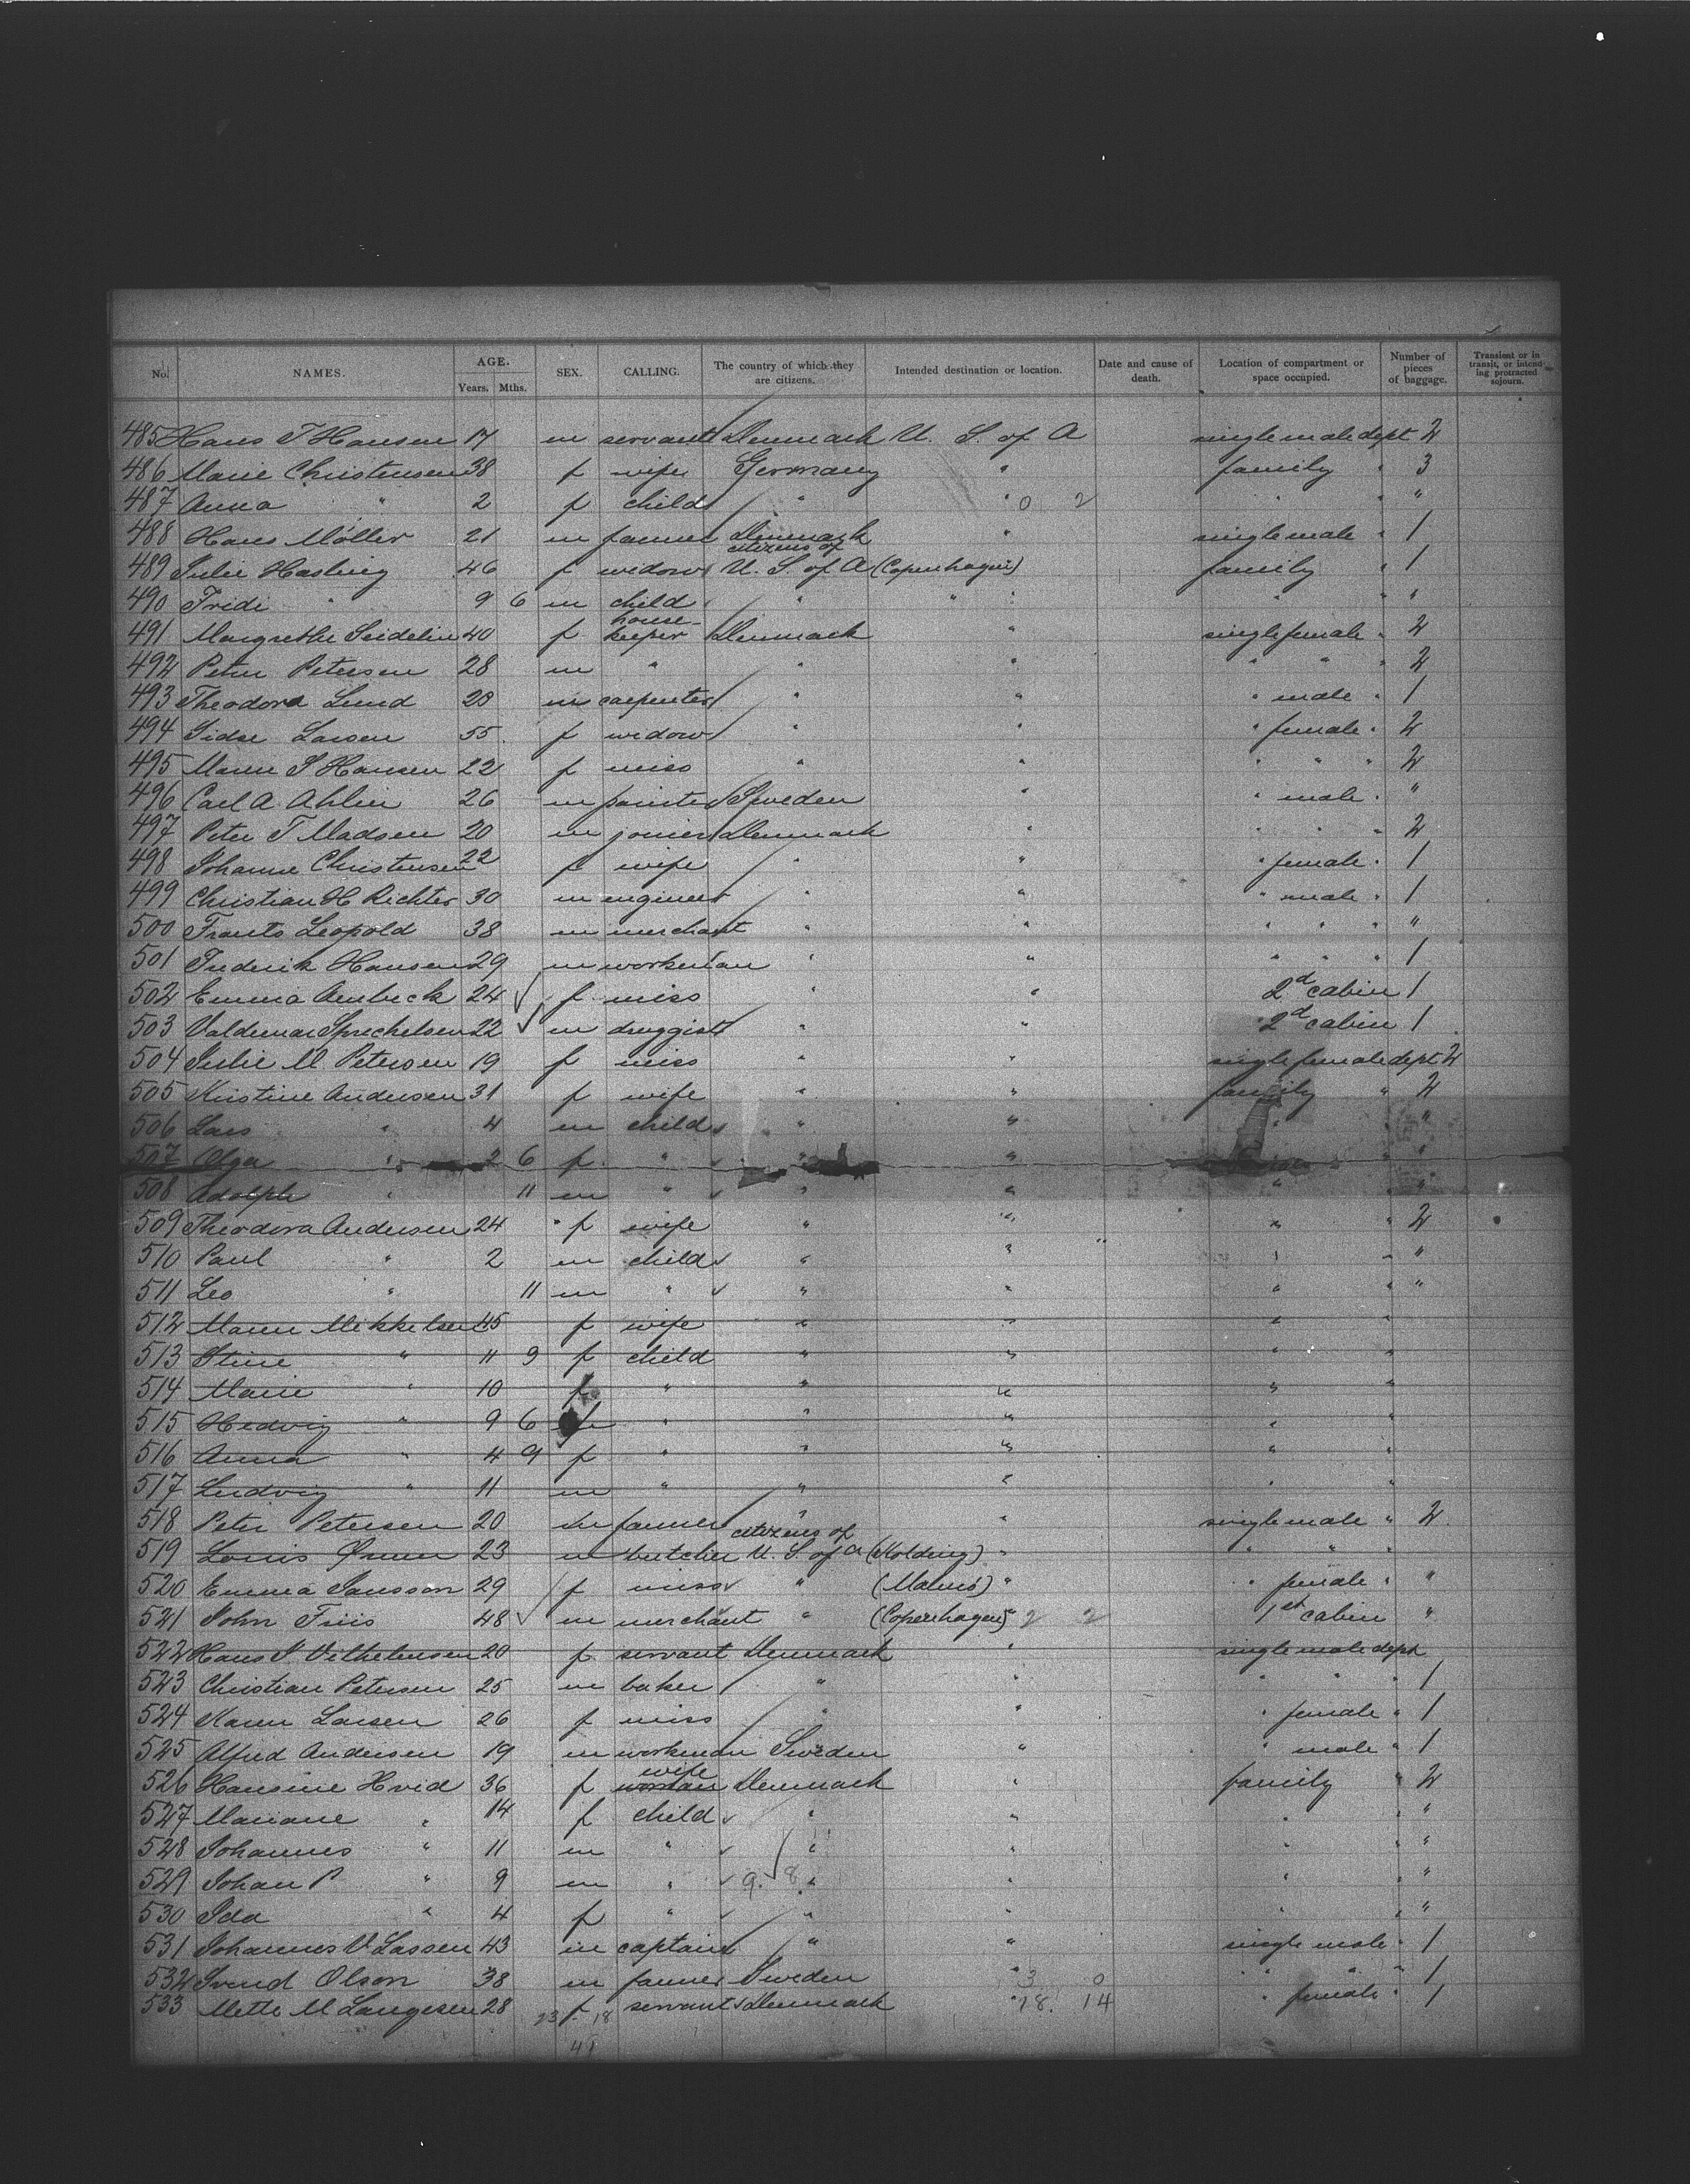 No. NAMES. AGE. Years. Mths. SEX. CALLING. The country of which they are citizens. Intended destination or location. Date and cause of death. Location of compartment or space occupied. Number of pieces of baggage. Transient or in transit, or intending protracted sojourn.
485 Hans T Hansen 17 m servant Denmark U. S. of A single male dept 2
486 Marie Christensen 38 f wife Germany " family " 3
487 Anna " 2 f child " " 0 2 " " "
488 Hans Möller 21 m farmer Denmark " single male " 1
489 Julie Hasling 46 f widow citizens of U. S. of A (Copenhagen) family " 1
490 Fridi " 9 6 m child " " " " "
491 Margrethe Seidelin 40 f house-keeper Denmark " single female " 2
492 Peter Petersen 28 m " " " " " " 2
493 Theodora Lund 28 m carpenter " " " male " 1
494 Sidse Larsen 55 f widow " " " female " 2
495 Maren S Hansen 22 f miss " " " " " 2
496 Carl A. Ahlin 26 m painter Sweden " " male " "
497 Peter T Madsen 20 m joiner Denmark " " " " 2
498 Johanne Christensen 22 f wife " " " female " 1
499 Christian H Richter 30 m engineer " " male " 1
500 Frants Leopold 38 m merchant " " " " " "
501 Frederik Hansen 29 m workman " " " " " 1
502 Emma Ambeck 24 f miss " " 2d cabin 1
503 Valdemar Sprechelsen 22 m druggist " " 2d cabin 1
504 Julie M Petersen 19 f miss " single female dept 2
505 Kristine Andersen 31 f wife " " family " 2
506 Lars " 4 m child " " " "
507 Olga " 2 6 f " " " " "
508 Adolph " 11 m " " " " " "
509 Theodora Andersen 24 f wife " " " " 2
510 Paul " 2 m child " " " " "
511 Leo " 11 m " " " " " "
512 Maren Mikkelsen 45 f wife " " " "
513 Stine " 11 9 f child " " " "
514 Marie " 10 f " " " " "
515 Hedvig " 9 6 " " " " "
516 Anna " 4 9 f " " " " "
517 Ludvig " 11 m " " " " "
518 Peter Petersen 20 m farmer " " single male " 2
519 Louis 23 m butcher citizens of U. S. of A (Kolding) " " " "
520 Emma Jansson 29 f miss " (Malmö) " " female " "
521 John Friis 48 m merchant " (Copenhagen) 2 2 1st cabin "
522 Hans J. Vilhelmsen 20 f servant Denmark " single male dept
523 Christian Petersen 25 m baker " " " " 1
524 Karen Larsen 26 f miss " " " female " 1
525 Alfred Andersen 19 m workman Sweden " " male " 1
526 Hansine Hvid 36 f wife woman Denmark " family " 2
527 Mariane " 14 f child " " " " "
528 Johannes " 11 m " " " " " "
529 Johan P " 9 m " 9. 8 " " " " "
530 Ida " 4 f " " " " " "
531 Johannes V Lassen 43 m captain " " single male " 1
532 Svend Olson 38 m farmer Sweden " 3 0 " " " 1
533 Mette M Langesen 28 f servant Denmark " 18. 14 " female " 1
23 - 18
41